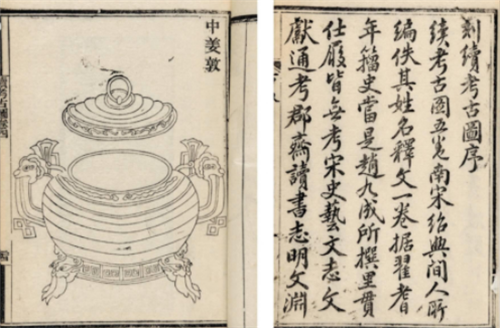 刻續考古圖序
續考古圖五卷南宋紹興間人所
編佚其姓名釋文一卷據翟耆
年籀史當是趙九成所撰里貫
仕履皆無考宋史藝文志文
獻通考郡齋讀書志明文淵
中姜敦